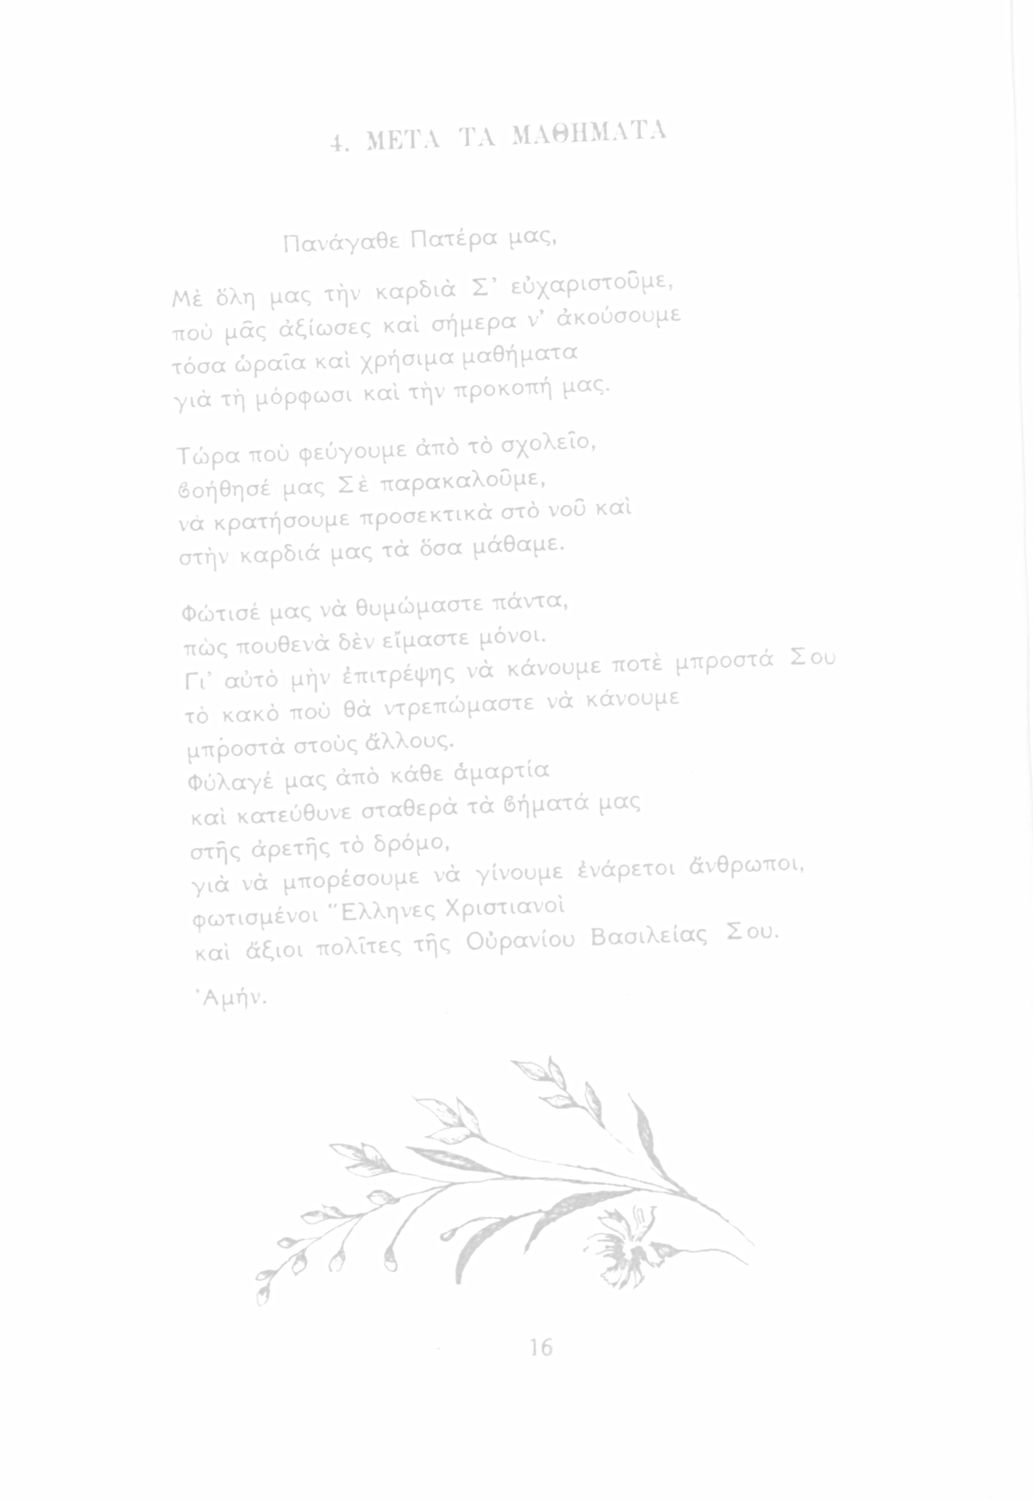 4. ΜΕΤΑ ΤΑ ΜΑΘΗΜΑΤΑ
Πανάγαθε Πατέρα μας,
Μὲ ὅλη μας τὴν καρδιὰ Σ' εὐχαριστοῦμε,
ποὺ μᾶς ἀξίωσες καὶ σήμερα ν' ἀκούσουμε
τόσα ὡραῖα καὶ χρήσιμα μαθήματα
γιὰ τὴ μόρφωσι καὶ τὴν προκοπή μας.
Τώρα ποὺ φεύγουμε ἀπὸ τὸ σχολεῖο,
βοήθησέ μας Σὲ παρακαλοῦμε,
νὰ κρατήσουμε προσεκτικὰ στὸ νοῦ καὶ
στὴν καρδιά μας τὰ ὅσα μάθαμε.
Φώτισέ μας νὰ θυμώμαστε πάντα,
πὼς πουθενὰ δὲν εἴμαστε μόνοι.
Γι' αὐτὸ μὴν ἐπιτρέψης νὰ κάνουμε ποτὲ μπροστά Σου
τὸ κακὸ ποὺ θὰ ντρεπώμαστε νὰ κάνουμε
μπροστὰ στοὺς ἄλλους.
Φύλαγέ μας ἀπὸ κάθε ἁμαρτία
καὶ κατεύθυνε σταθερὰ τὰ βήματά μας
στῆς ἀρετῆς τὸ δρόμο,
γιὰ νὰ μπορέσουμε νὰ γίνουμε ἐνάρετοι ἄνθρωποι,
φωτισμένοι Ἕλληνες Χριστιανοὶ
καὶ ἄξιοι πολῖτες τῆς Οὐρανίου Βασιλείας Σου.
Ἀμήν.
16